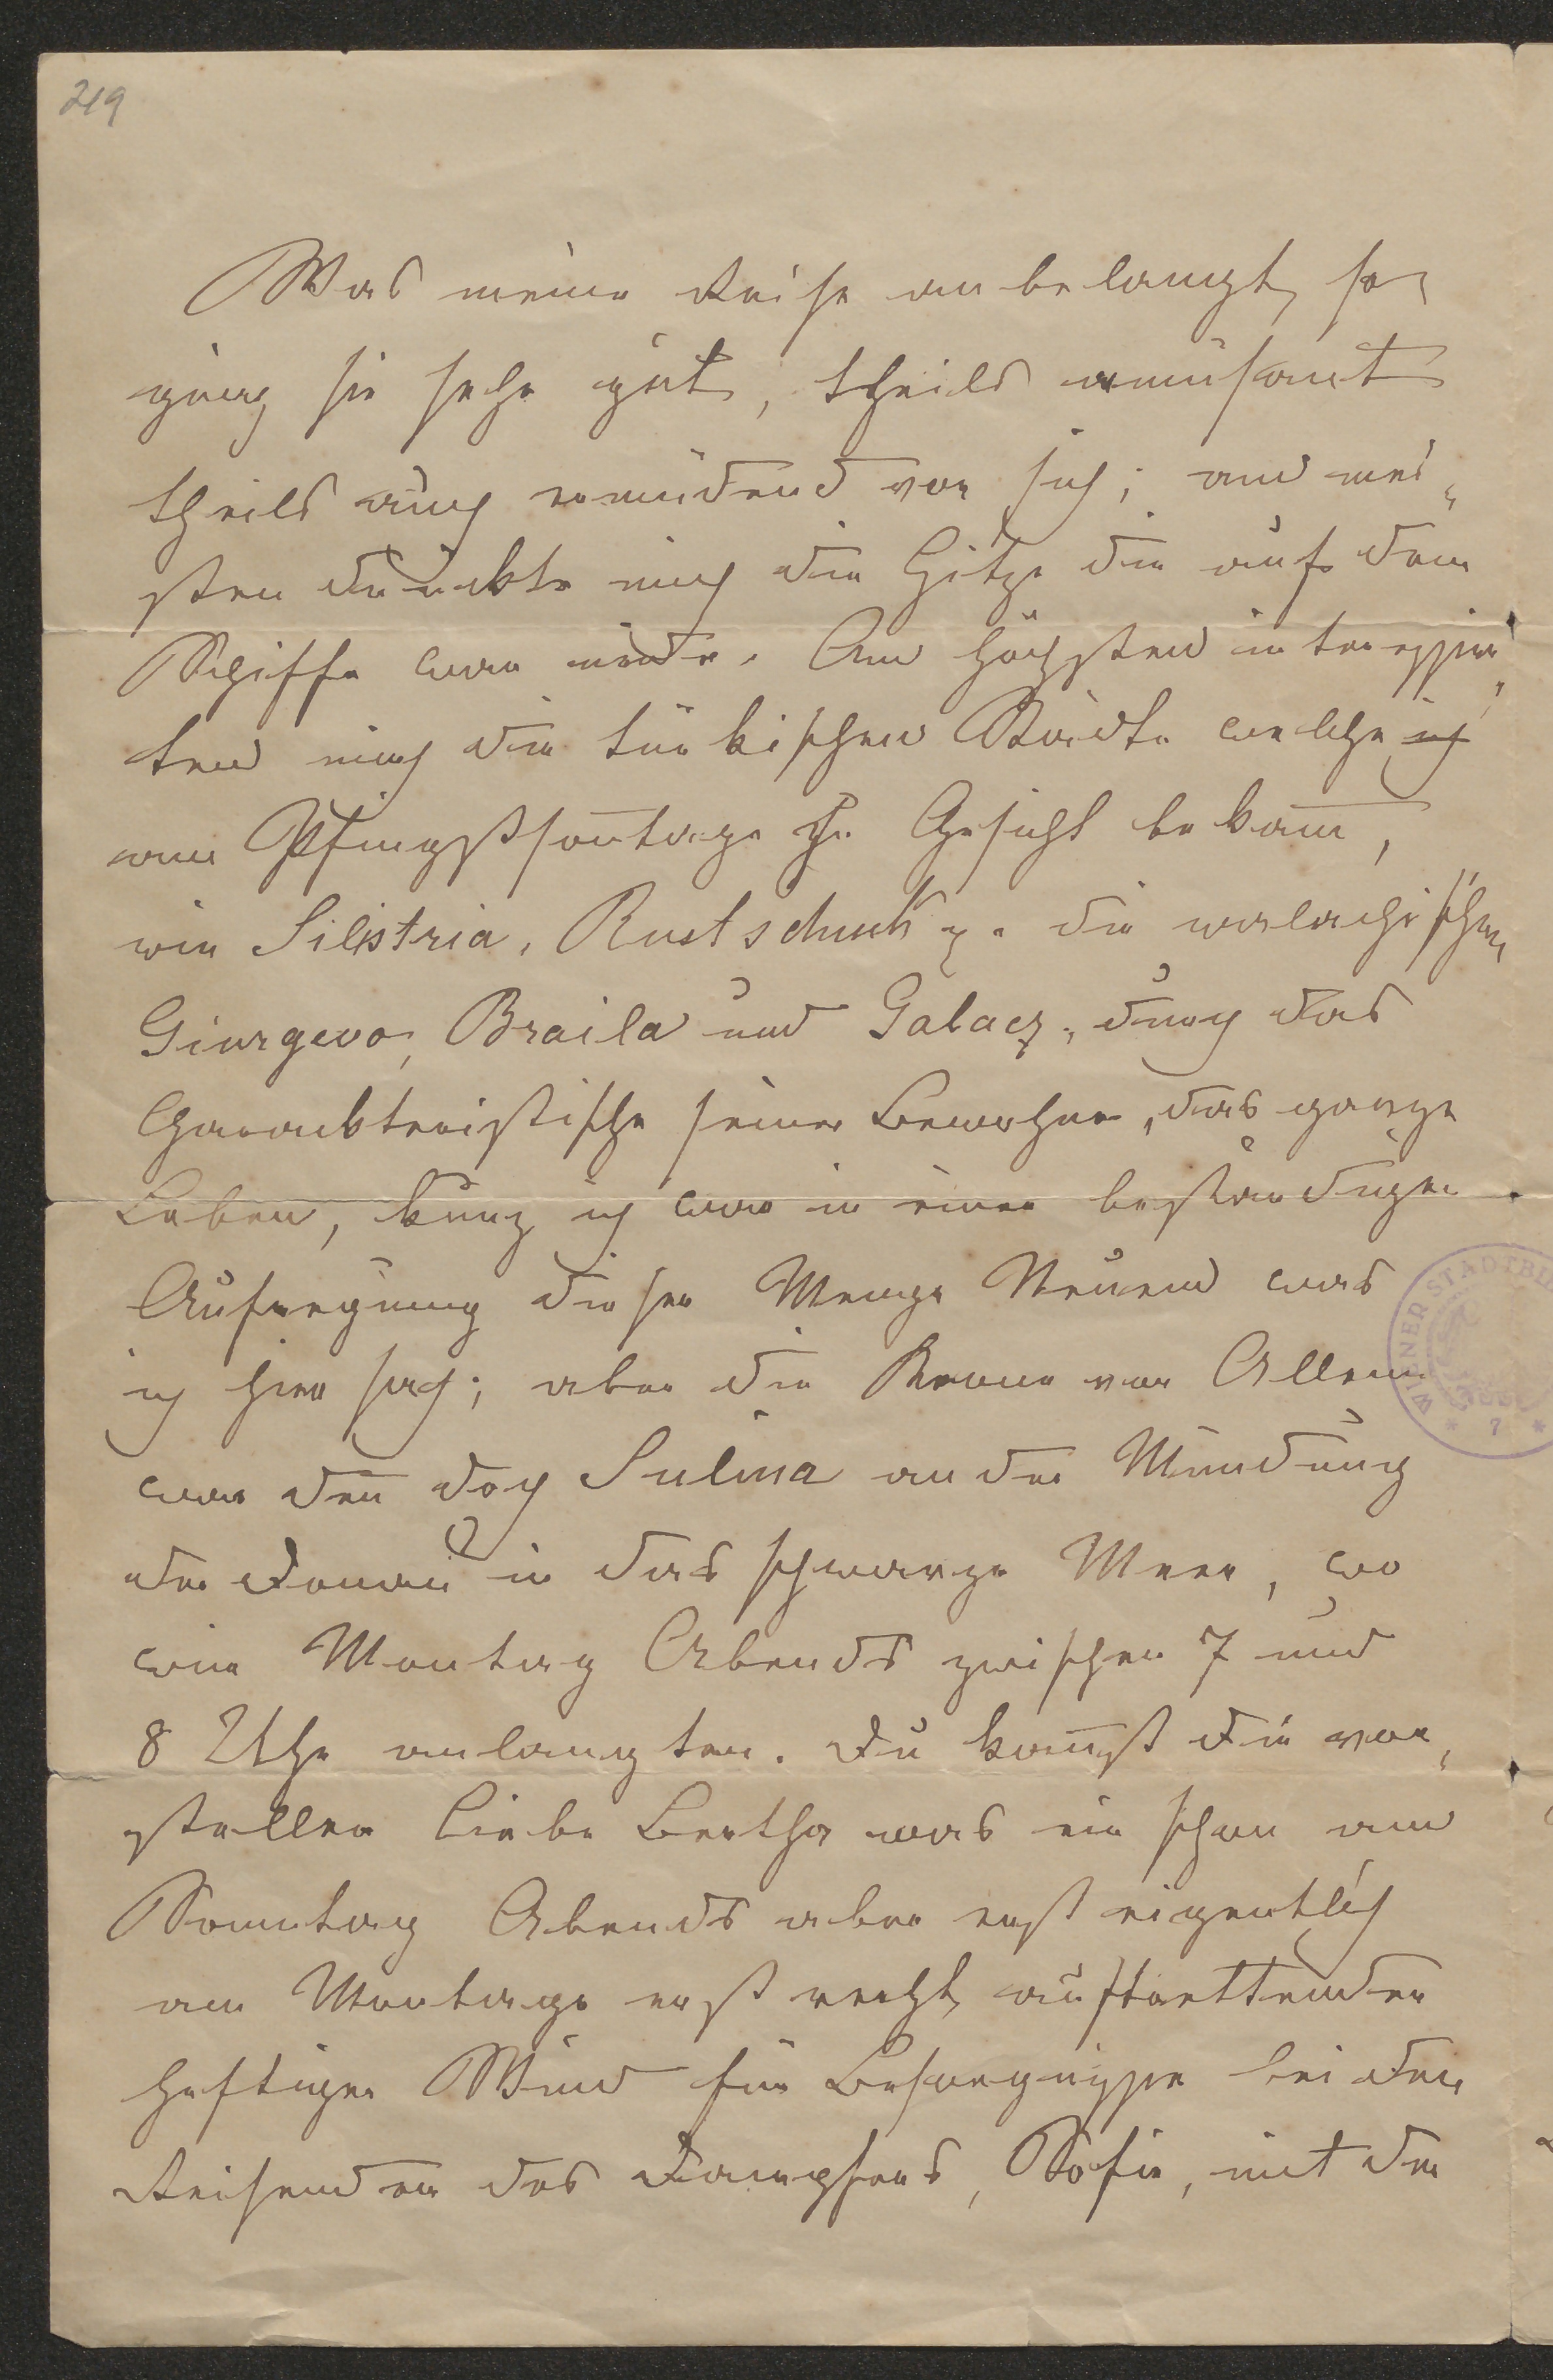 219
Was meine Reise anbelangt, so
ging sie sehr gut, theils amüsant
theils auch ermüdend vor sich; am mei„
sten drückte mich die Hitze die auf dem
Schiffe war nieder. Am höchsten interessir„
ten mich die türkischen Städte welche ich
am Pfingstsontage zu Gesicht bekam,
wie Silistria, Rustschuk die walachischen
Giurgevo, Braila und Galacz, durch das
Charackteristische seiner Bewohner, das ganze
Leben, kurz ich war in einer beständigen
Aufregung dieser Menge Neuem was
ich hier sah; aber die Krone von Allem
war den doch Sulina an der Mündung
der Donau in das schwarze Meer, wo
wir Montag Abends zwischen 7 und
8 Uhr anlangten. Du kannst dir vor„
stellen liebe Bertha was ein schon am
Sonntag Abends aber erst eigentlich
am Montage erst recht auftrettender
heftiger Wind für Besorgnisse bei den
Reisenden des Dampfers, Sofie, mit der
WIENER STADTBI
* 7 *